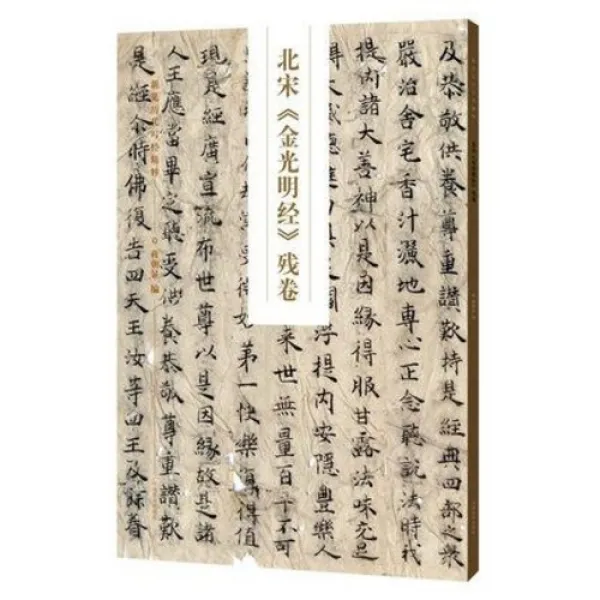 北宋《金光明经》残卷
及恭敬供養尊重讚歎持是經典四部之衆
嚴治舍宅香汁灑地專心正念聽說法時我
提內諸大善神以是因緣得服甘露法味充足
浮提內安隱豐樂人
來世無量百千不可
第一快樂復得值
現是經廣宣流布世尊以是因緣故是諸
人王應當畢定聽受供養恭敬尊重讚歎
是經尒時佛復告四天王汝等四王及餘眷